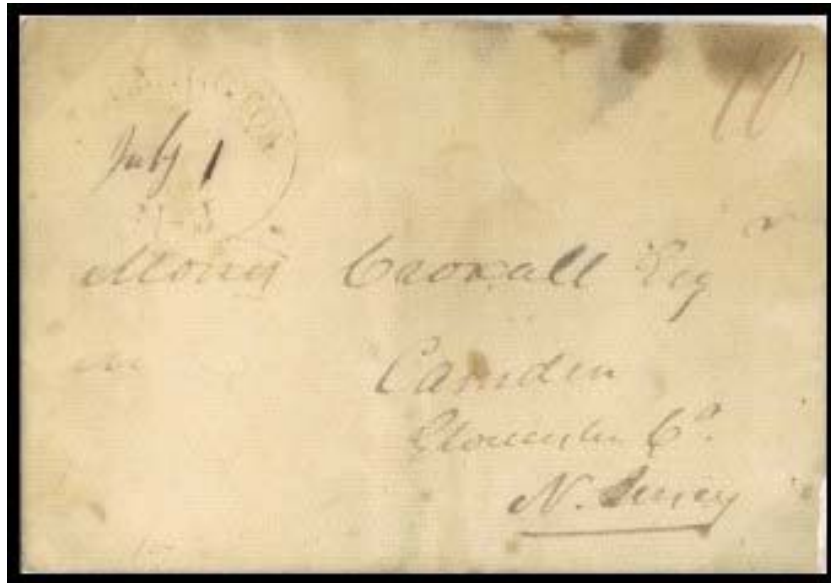 10
July 1
N.J
Morris Croxall Esq
Camden
Gloucester Co.
N. Jersey